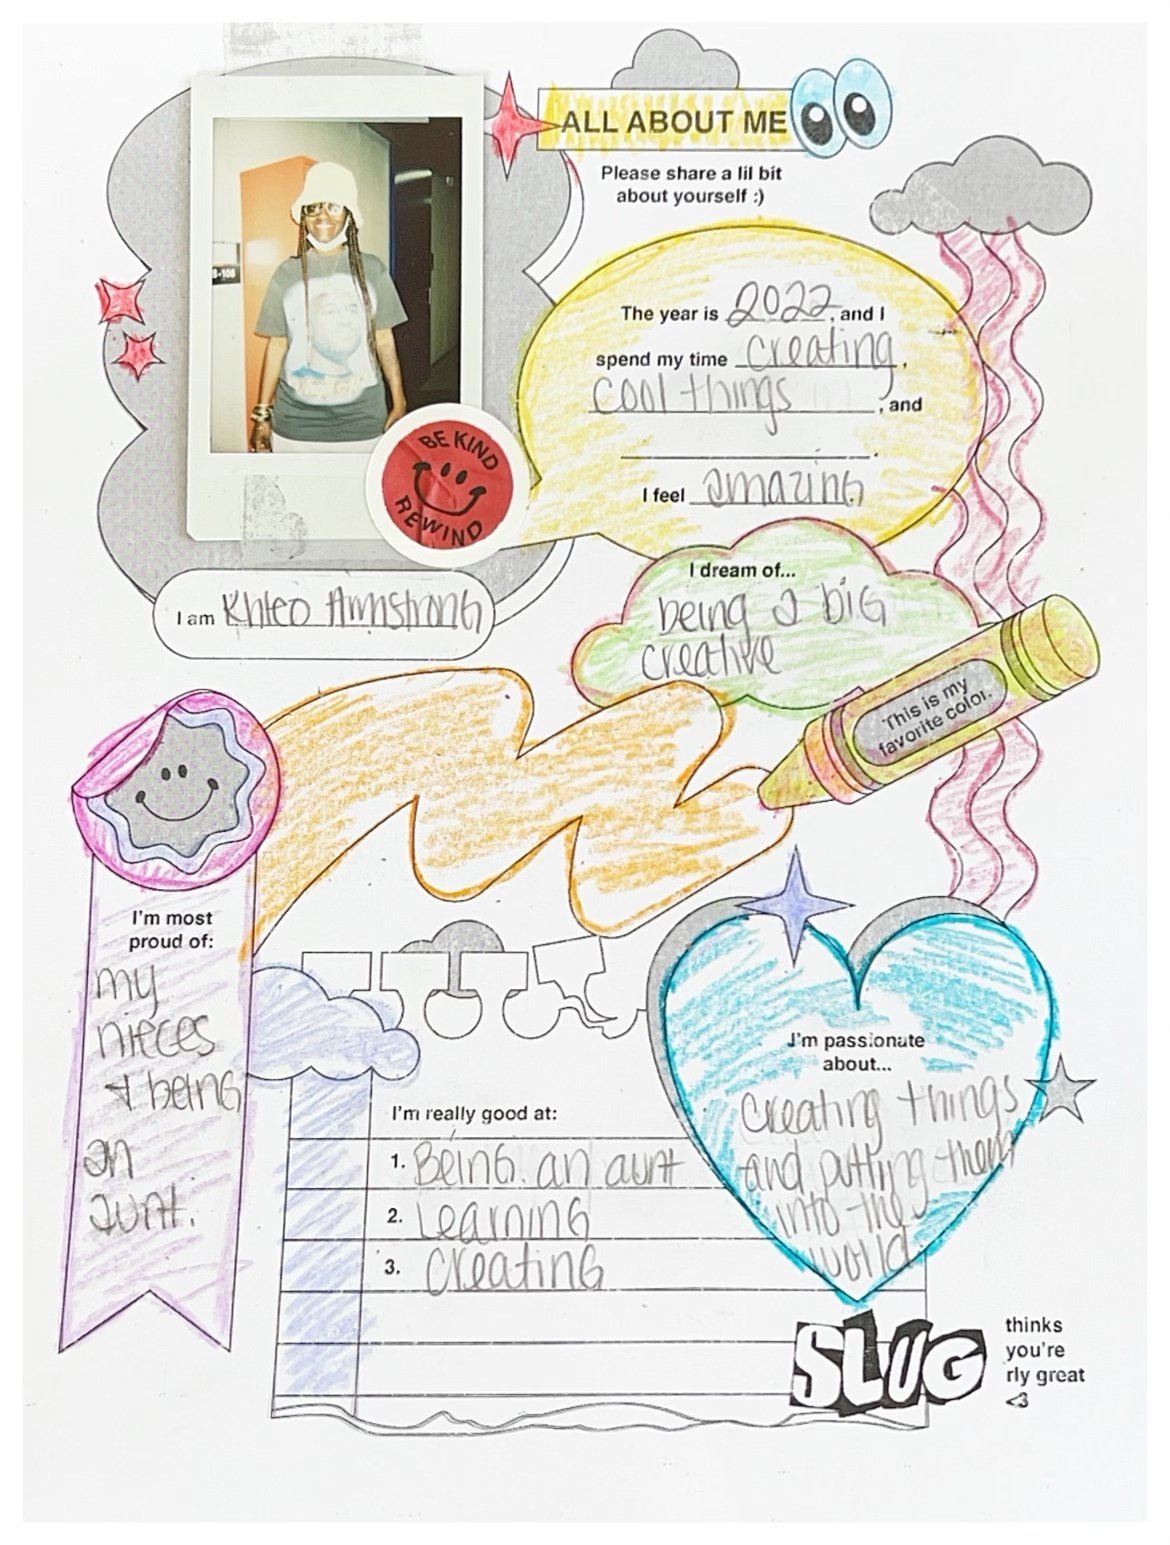 ALL ABOUT ME
Please share a lil bit
about yourself :)
S-108
The year is 2022, and I
spend my time creating,
cool things, and
.
I feel amazing
BE KIND
REWIND
I dream of...
being a big
creative
I am Khleo Armstrong
This is my
favorite color.
I'm most
proud of:
my
nieces
& being
an
aunt.
I'm really good at:
1. Being an aunt
2. Learning
3. Creating
I'm passionate
about...
Creating things
and putting them
into the
world.
SLUG
thinks
you're
rly great
<3